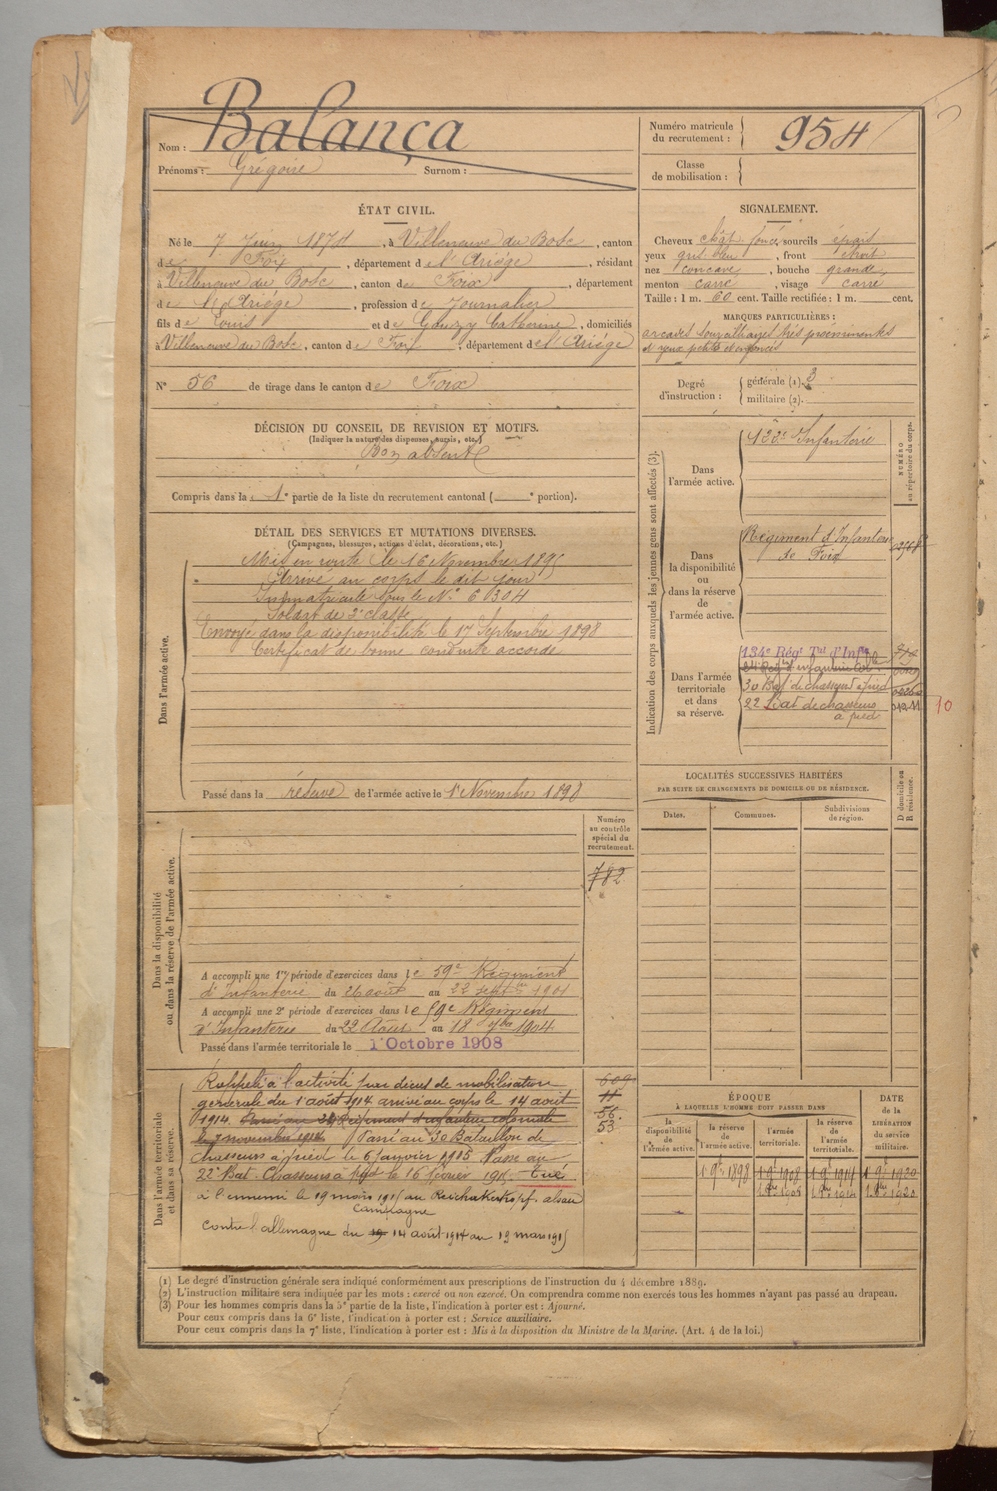 Nom : Balança
Prénoms : Grégoire Surnom :
Numéro matricule du recrutement : 954
Classe de mobilisation :
ÉTAT CIVIL.
Né le 7 Juin 1874, à Villeneuve du Bosc, canton
de Foix, département de l'Ariége, résidant
à Villeneuve du Bosc, canton de Foix, département
de l'Ariége, profession de Journalier
fils de Louis et de Gouzy Catherine, domiciliés
à Villeneuve du Bosc, canton de Foix, département de l'Ariége
N° 56 de tirage dans le canton de Foix
SIGNALEMENT.
Cheveux chât. foncé, sourcils épais
yeux gris bleu, front étroit
nez concave, bouche grande,
menton carré, visage carré
Taille : 1 m. 60 cent. Taille rectifiée : 1 m. cent.
MARQUES PARTICULIÈRES :
arcades sourcilières très proéminentes
et yeux petits et enfoncés
Degré d'instruction : générale (1). 3
militaire (2).
DÉCISION DU CONSEIL DE REVISION ET MOTIFS.
(Indiquer la nature des dispenses, sursis, etc.)
Bon absent
Compris dans la 1e partie de la liste du recrutement cantonal ( e portion).
DÉTAIL DES SERVICES ET MUTATIONS DIVERSES.
(Campagnes, blessures, actions d'éclat, décorations, etc.)
Dans l'armée active.
Mis en route le 16 Novembre 1895
Arrivé au corps le dit jour
Immatriculé sous le N° 6304
Soldat de 2e classe
Envoyé dans la disponibilité le 17 Septembre 1898
Certificat de bonne conduite accordé
Passé dans la réserve de l'armée active le 1er Novembre 1898
Indication des corps auxquels les jeunes gens sont affectés (3).
NUMÉRO au répertoire du corps.
Dans l'armée active.
Infanterie
Dans la disponibilité ou dans la réserve de l'armée active.
Régiment d'Infanterie
de Foix
Dans l'armée territoriale et dans sa réserve.
134e Régt Tal d'Infie
24 Régt d'infanterie Cole
30 Bat de chasseurs à pied
22 Bat de chasseurs
à pied
10
LOCALITÉS SUCCESSIVES HABITÉES
PAR SUITE DE CHANGEMENTS DE DOMICILE OU DE RÉSIDENCE.
Dates. Communes. Subdivisions de région. D domicile ou R résidence.
Dans la disponibilité ou dans la réserve de l'armée active.
Numéro au contrôle spécial du recrutement.
782
A accompli une 1re période d'exercices dans le 59e Régiment
d'Infanterie du 26 août au 22 septbre 1901
A accompli une 2e période d'exercices dans le 59e Régiment
d'Infanterie du 22 Août au 18 7bre 1904
Passé dans l'armée territoriale le 1er Octobre 1908
Dans l'armée territoriale et dans sa réserve.
Rappelé à l'activité par décret de mobilisation
générale du 1er août 1914 arrivé au corps le 14 août
1914. Passé au 24 Régiment d'infanterie coloniale
le 7 novembre 1914 Passé au 30 Bataillon de
chasseurs à pied le 6 janvier 1915 Passé au
22e Bat. Chasseurs à pied le 16 février 1915. Tué
à l'ennemi le 19 mars 1915 au Reichakerkopf. alsace
Campagne
contre l'allemagne du 14 août 1914 au 19 mars 1915
609
11
56
53
ÉPOQUE
À LAQUELLE L'HOMME DOIT PASSER DANS
DATE de la LIBÉRATION du service militaire.
la disponibilité de l'armée active. la réserve de l'armée active. l'armée territoriale. la réserve de l'armée territoriale.
1 9b 1898 1 9b 1908 1 9b 1914 1 9b 1920
1 8bre 1908 1 8bre 1914 1 8bre 1920
(1) Le degré d'instruction générale sera indiqué conformément aux prescriptions de l'instruction du 4 décembre 1889.
(2) L'instruction militaire sera indiquée par les mots : exercé ou non exercé. On comprendra comme non exercés tous les hommes n'ayant pas passé au drapeau.
(3) Pour les hommes compris dans la 5e partie de la liste, l'indication à porter est : Ajourné.
Pour ceux compris dans la 6e liste, l'indication à porter est : Service auxiliaire.
Pour ceux compris dans la 7e liste, l'indication à porter est : Mis à la disposition du Ministre de la Marine. (Art. 4 de la loi.)